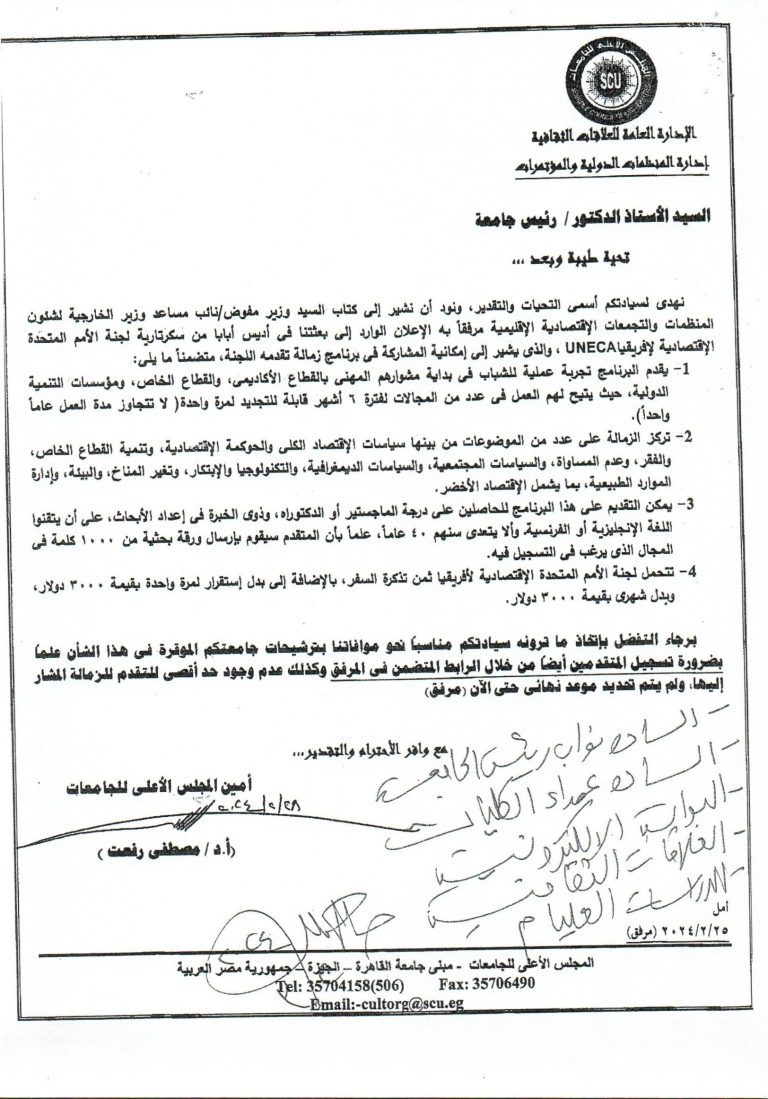 المجلس الأعلى للجامعات
SCU
SUPREME COUNCIL OF UNIVERSITIES
الإدارة العامة للعلاقات الثقافية
إدارة المنظمات الدولية والمؤتمرات
السيد الأستاذ الدكتور/ رئيس جامعة
تحية طيبة وبعد ...
نهدى لسيادتكم أسمى التحيات والتقدير، ونود أن نشير إلى كتاب السيد وزير مفوض/نائب مساعد وزير الخارجية لشئون
المنظمات والتجمعات الإقتصادية الإقليمية مرفقاً به الإعلان الوارد إلى بعثتنا فى أديس أبابا من سكرتارية لجنة الأمم المتحدة
الإقتصادية لإفريقيا UNECA ، والذى يشير إلى إمكانية المشاركة فى برنامج زمالة تقدمه اللجنة، متضمناً ما يلى:
1- يقدم البرنامج تجربة عملية للشباب فى بداية مشوارهم المهنى بالقطاع الأكاديمى، والقطاع الخاص، ومؤسسات التنمية
الدولية، حيث يتيح لهم العمل فى عدد من المجالات لفترة ٦ أشهر قابلة للتجديد لمرة واحدة( لا تتجاوز مدة العمل عاماً
واحداً).
2- تركز الزمالة على عدد من الموضوعات من بينها سياسات الإقتصاد الكلى والحوكمة الإقتصادية، وتنمية القطاع الخاص،
والفقر، وعدم المساواة، والسياسات المجتمعية، والسياسات الديمغرافية، والتكنولوجيا والإبتكار، وتغير المناخ، والبيئة، وإدارة
الموارد الطبيعية، بما يشمل الإقتصاد الأخضر.
3- يمكن التقديم على هذا البرنامج للحاصلين على درجة الماجستير أو الدكتوراه، وذوى الخبرة فى إعداد الأبحاث، على أن يتقنوا
اللغة الإنجليزية أو الفرنسية، وألا يتعدى سنهم ٤٠ عاماً، علماً بأن المتقدم سيقوم بإرسال ورقة بحثية من ١٠٠٠ كلمة فى
المجال الذى يرغب فى التسجيل فيه.
4- تتحمل لجنة الأمم المتحدة الإقتصادية لأفريقيا ثمن تذكرة السفر، بالإضافة إلى بدل إستقرار لمرة واحدة بقيمة ٣٠٠٠ دولار،
وبدل شهرى بقيمة ٣٠٠٠ دولار.
برجاء التفضل بإتخاذ ما ترونه سيادتكم مناسباً نحو موافاتنا بترشيحات جامعتكم الموقرة فى هذا الشأن علماً
بضرورة تسجيل المتقدمين أيضاً من خلال الرابط المتضمن فى المرفق وكذلك عدم وجود حد أقصى للتقدم للزمالة المشار
إليها، ولم يتم تحديد موعد نهائى حتى الآن (مرفق)
مع وافر الأحترام والتقدير...
أمين المجلس الأعلى للجامعات
٢٠٢٤/٢/٢٨
(أ.د/ مصطفى رفعت )
- السادة نواب رئيس الجامعة
- السادة عمداء الكليات
- البوابة الالكترونية
- العلاقات الثقافية
- الدراسات العليا
أمل
٢٠٢٤/٢/٢٥ (مرفق)
المجلس الأعلى للجامعات - مبنى جامعة القاهرة – الجيزة – جمهورية مصر العربية
Tel: 35704158(506) Fax: 35706490
Email:-cultorg@scu.eg